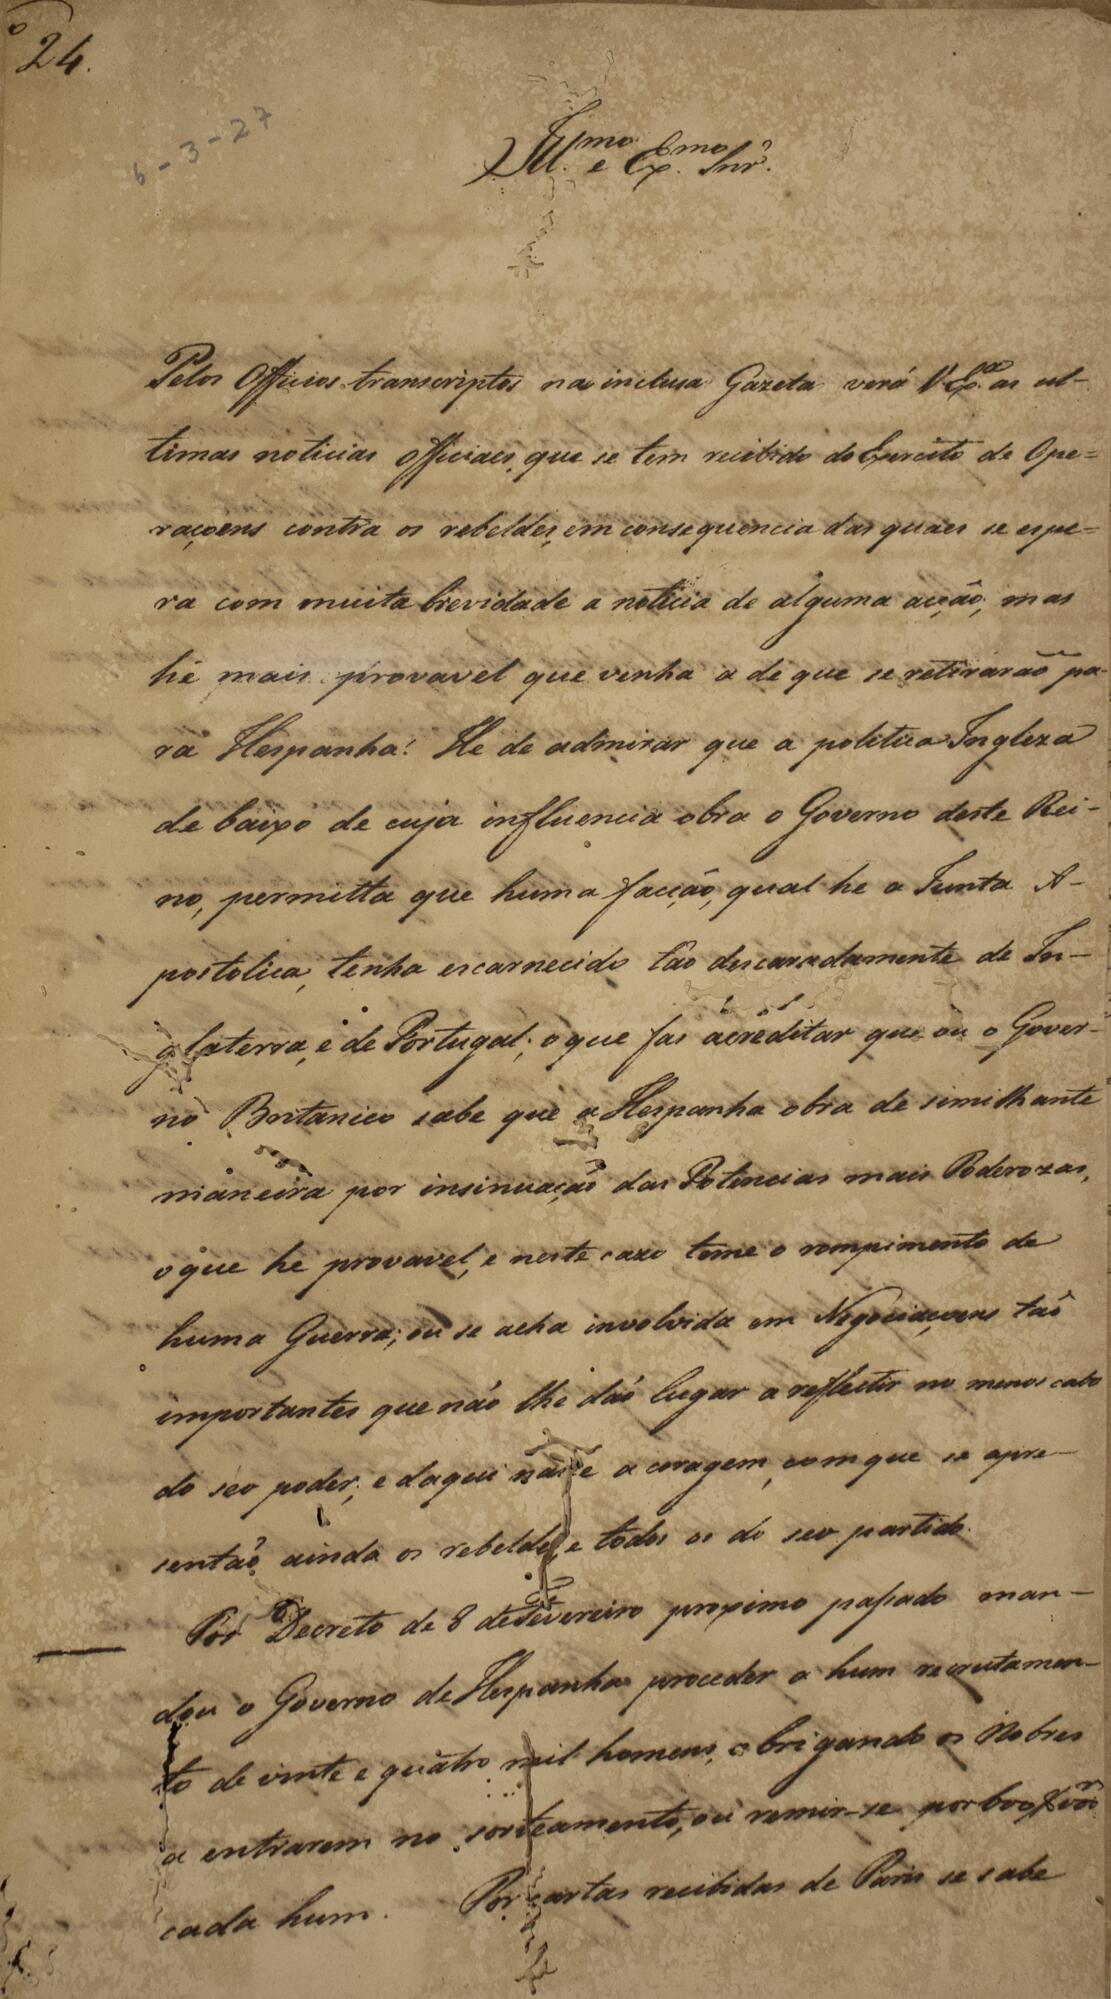 24.
6-3-27
Ill.mo e Ex.mo Snr.
Pelos Officios transcriptos na inclusa Gazeta verá V. Ex.ca as ul-
timas noticias officiaes, que se tem recibido do Exercito de Ope=
raçoens contra os rebeldes, em consequencia das quaes se espe=
ra com muita brevidade a noticia de alguma acção; mas
he mais provavel que venha a de que se retirárão pa-
ra Hespanha! He de admirar que a politica Ingleza
de baixo de cuja influencia obra o Governo deste Rei-
no, permitta que huma facção, qual he a Junta A-
postolica, tenha escarnecido tão descaradamente de In-
glaterra, e de Portugal; o que fas acreditar que ou o Gover-
no Britanico sabe que a Hespanha obra de similhante
maneira por insinuação das Potencias mais Poderozas,
o que he provavel, e neste cazo teme o rompimento de
huma Guerra; ou se acha involvida em Negociaçoens tão
importantes que não lhe dão lugar a reflectir no menos cabo
do seo poder; e daqui nasce a coragem, com que se apre-
sentão ainda os rebeldes, e todos os do seo partido.
Por Decreto de 8 de Fevereiro proximo passado man-
dou o Governo de Hespanha proceder a hum recrutamen-
to de vinte e quatro mil homens, obrigando os Nobres
a entrarem no sorteamento, ou remir-se por
cada hum. Por cartas recibidas de Paris se sabe